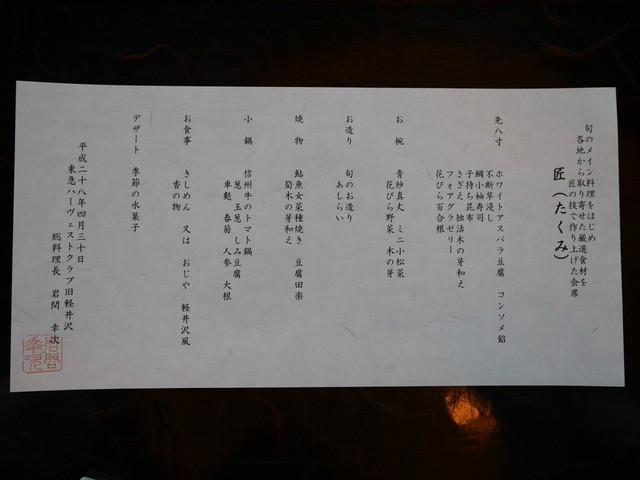 旬のメイン料理をはじめ
各地から取り寄せた厳選食材を
匠の技で作り上げた会席
匠(たくみ)
先八寸 ホワイトアスパラ豆腐 コンソメ餡
不断草浸し
鯛小袖寿司
子持ち昆布
さざえ 独活木の芽和え
フォアグラゼリー
花びら百合根
お椀 青紗真丈 ミニ小松菜
花びら野菜 木の芽
お造り 旬のお造り
あしらい
焼物 鮎魚女菜種焼き 豆腐田楽
筍木の芽和え
小鍋 信州牛のトマト鍋
葱 玉葱 しみ豆腐
車麩 春菊 人参 大根
お食事 きしめん 又は おじや 軽井沢風
香の物
デザート 季節の水菓子
平成二十八年四月三十日
東急ハーヴェストクラブ旧軽井沢
総料理長 岩間 幸次
岩間
幸次